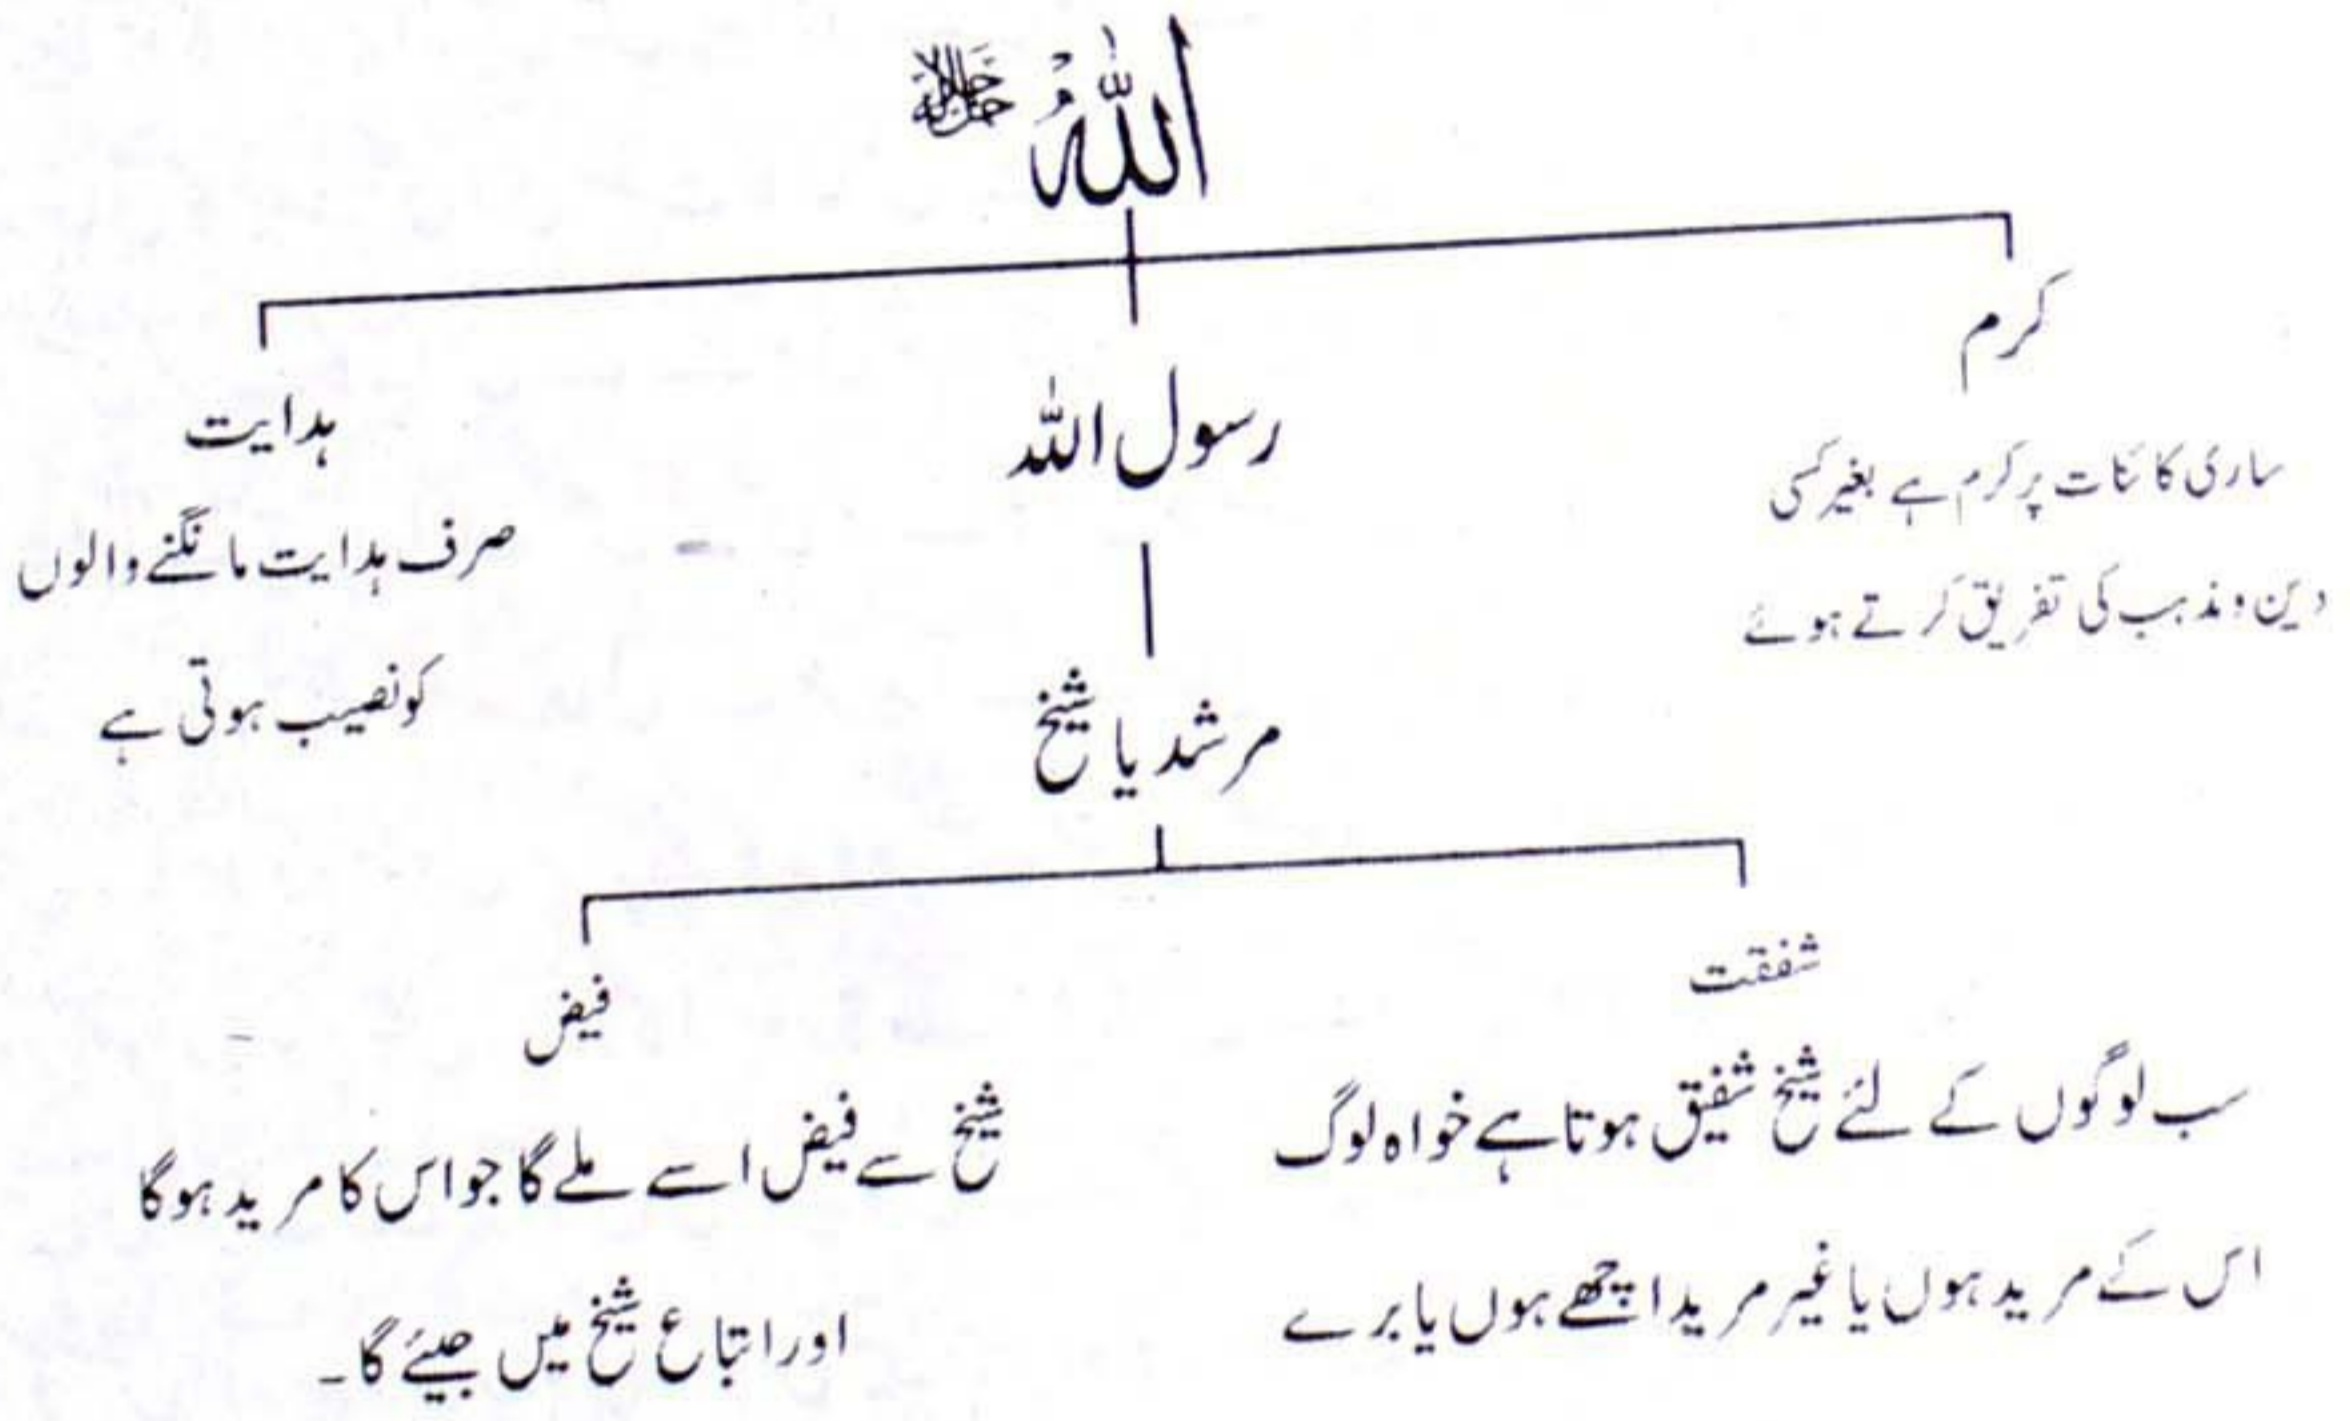 اللہُ جل جلالہ
کرم
ساری کائنات پر کرم ہے بغیر کسی
دین و مذہب کی تفریق کرتے ہوئے
رسول اللہ
ہدایت
صرف ہدایت مانگنے والوں
کو نصیب ہوتی ہے
مرشد یا شیخ
شفقت
سب لوگوں کے لئے شیخ شفیق ہوتا ہے خواہ لوگ
اس کے مرید ہوں یا غیر مرید اچھے ہوں یا برے
فیض
شیخ سے فیض اسے ملے گا جو اس کا مرید ہوگا
اور اتباع شیخ میں جیئے گا۔